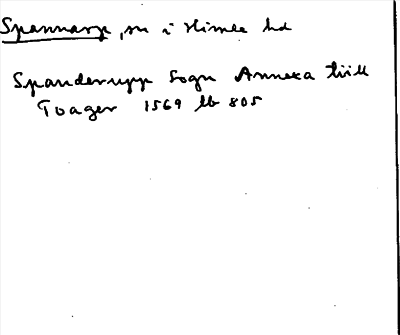 Spannarp, sn i Himle hd
Spanderupp Sogn Annexa till
Toager 1569 lb 805